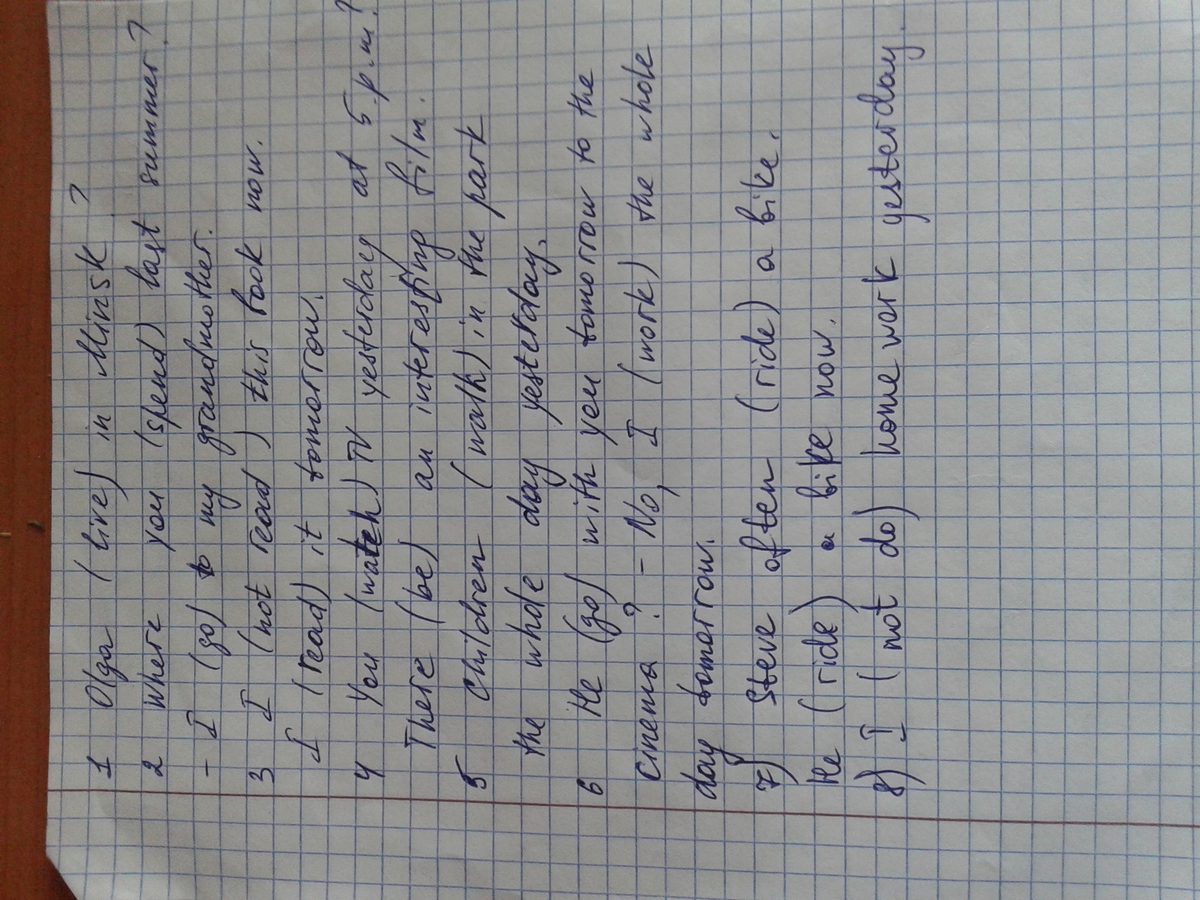 1 Olga (live) in Minsk ?
2 where you (spend) last summer ?
- I (go) to my grandmother.
3 I (not read) this book now.
I (read) it tomorrow.
4 You (watch) TV yesterday at 5 p.m?
There (be) an interesting film.
5 Children (walk) in the park
the whole day yesterday.
6 He (go) with you tomorrow to the
cinema ? - No, I (work) the whole
day tomorrow.
7) Steve often (ride) a bike.
He (ride) a bike now.
8) I (not do) homework yesterday.